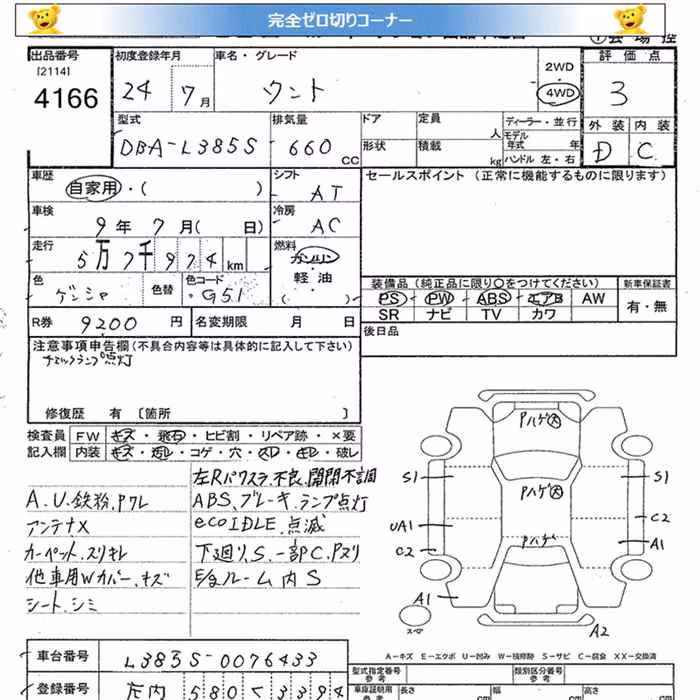 完全ゼロ切りコーナー
出品番号 初度登録年月 車名・グレード 2WD 評価点
[2114]
4166 24 7月 タント 4WD 3
型式 排気量 ドア 定員 人 ディーラー・並行 外装 内装
DBA-L385S 660CC 形状 積載 kg モデル年式 年 ハンドル 左・右 D C
車歴 自家用・( ) シフト AT セールスポイント (正常に機能するものに限ります)
車検 9年 7月( 日) 冷房 AC
走行 5万7千974km 燃料 ガソリン
軽油
( )
色 ゲンシャ 色替 色コード G51
装備品 (純正品に限り○をつけてください) 新車保証書
PS PW ABS エアB AW 有・無
SR ナビ TV カワ
R券 9200円 名変期限 月 日 後日品
注意事項申告欄(不具合内容等は具体的に記入して下さい)
チェックランプ点灯
修復歴 有 [箇所 ]
検査員 FW キズ・飛石・ヒビ割・リペア跡・×要
記入欄 内装 キズ・汚レ・コゲ・穴・スレ・キレ・破レ
左Rパワスラ.不良.開閉不調
A.U.鉄粉.Pワレ ABS.ブレーキ.ランプ点灯
アンテナX ecoIDLE.点滅
カーペット.スリキレ 下廻り.S.一部C.Pヌリ
他車用Wカバー.キズ E/gルーム内S
シート.シミ
Pハゲ大
S1 Pハゲ大 S1
UA1 C2
C2 Pハゲ A1
A1
スペア A2
A-キズ E-エクボ U-凹み W-補修跡 S-サビ C-腐食 XX-交換済
車台番号 L385S-0076433
型式指定番号 参考 類別区分番号 参考
登録番号 庄内 580 く 3394
車庫証明用 参考 長さ cm 幅 cm 高さ cm